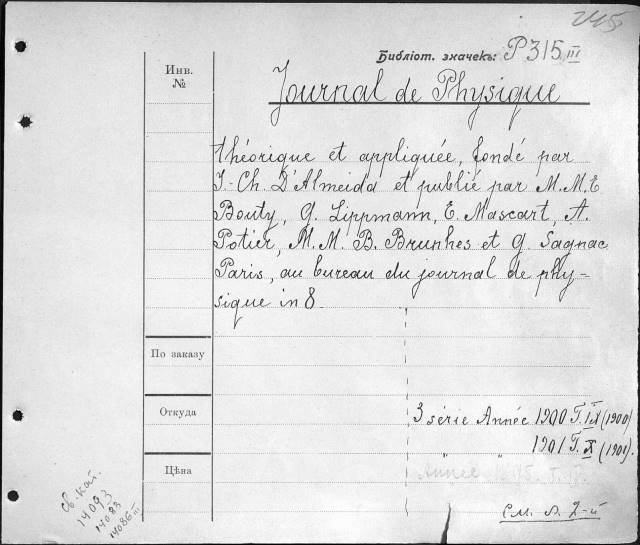 245
Библіот. значекъ: P315 III
Инв.
№
Journal de Physique
théorique et appliquée, fondé par
J.-Ch. D'Almeida et publié par M.M. E
Bouty, G. Lippmann, E. Mascart, A.
Potier, M.M. B. Brunhes et G. Sagnac
Paris, au bureau du journal de phy-
sique in 8.
По заказу
Откуда
3 série Année 1900 T. IX (1900)
" " 1901 T. X (1901).
Цѣна
Année
См. л. 2-й
св. кат.
14093
14083
14086 III